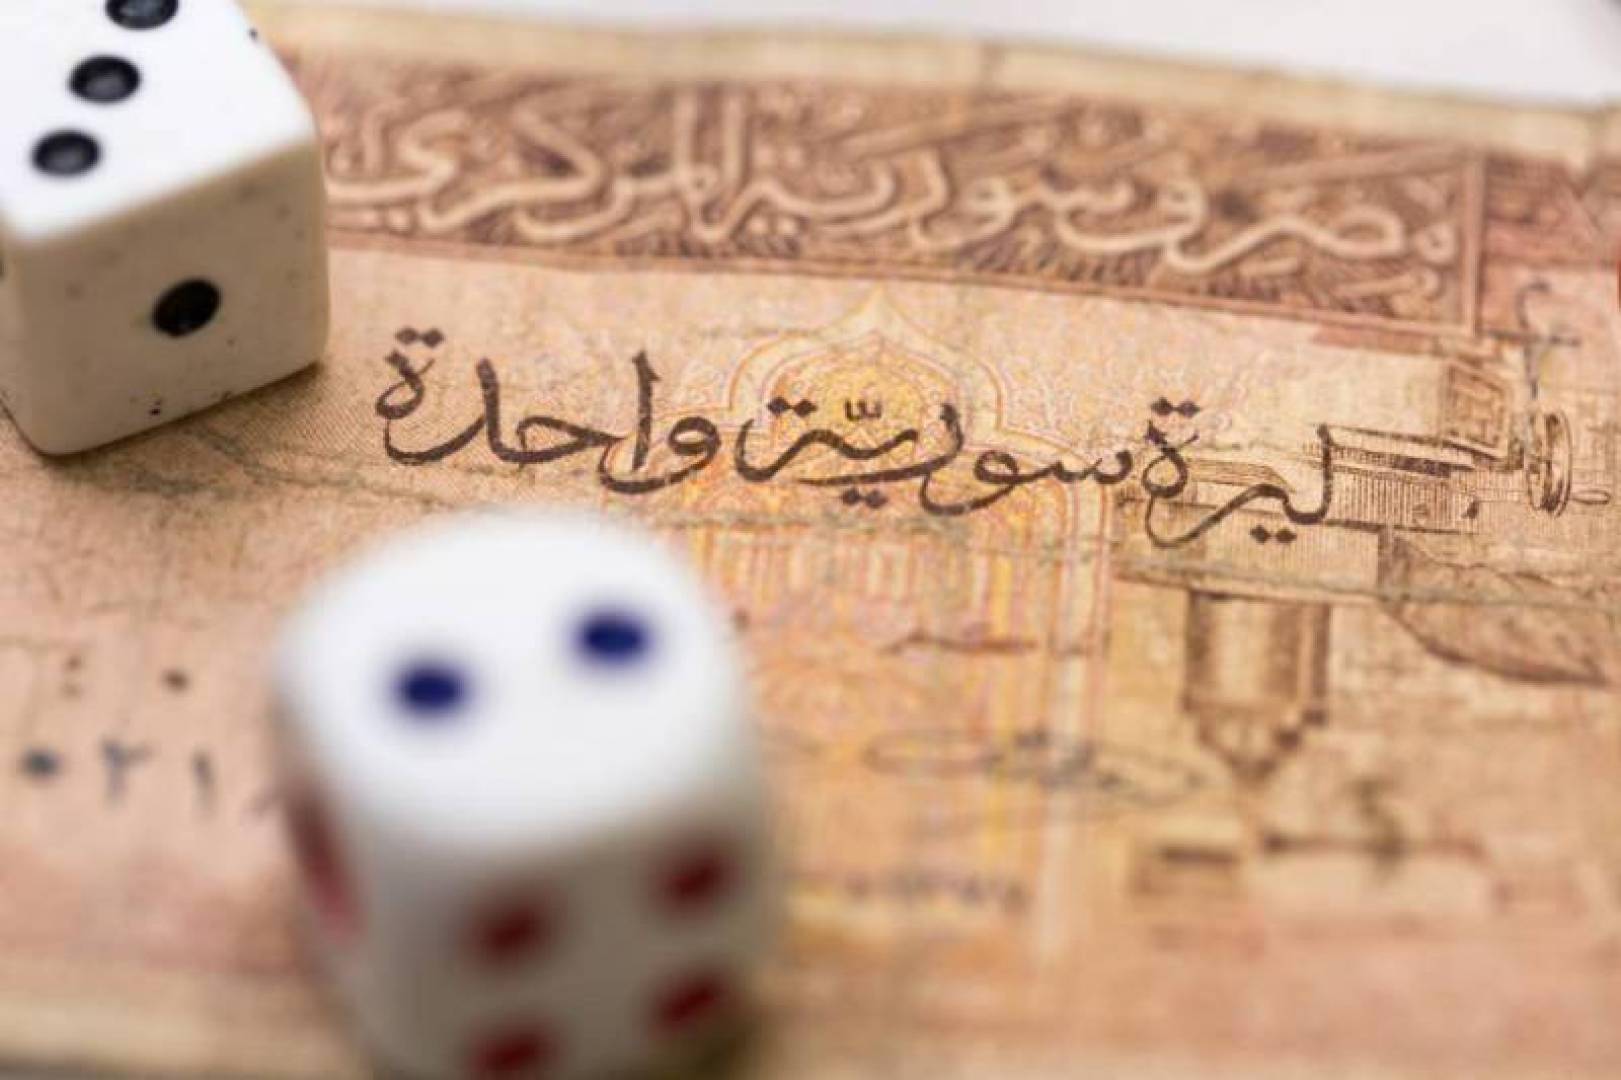 مصرف سورية المركزي
ليرة سوريّة واحدة